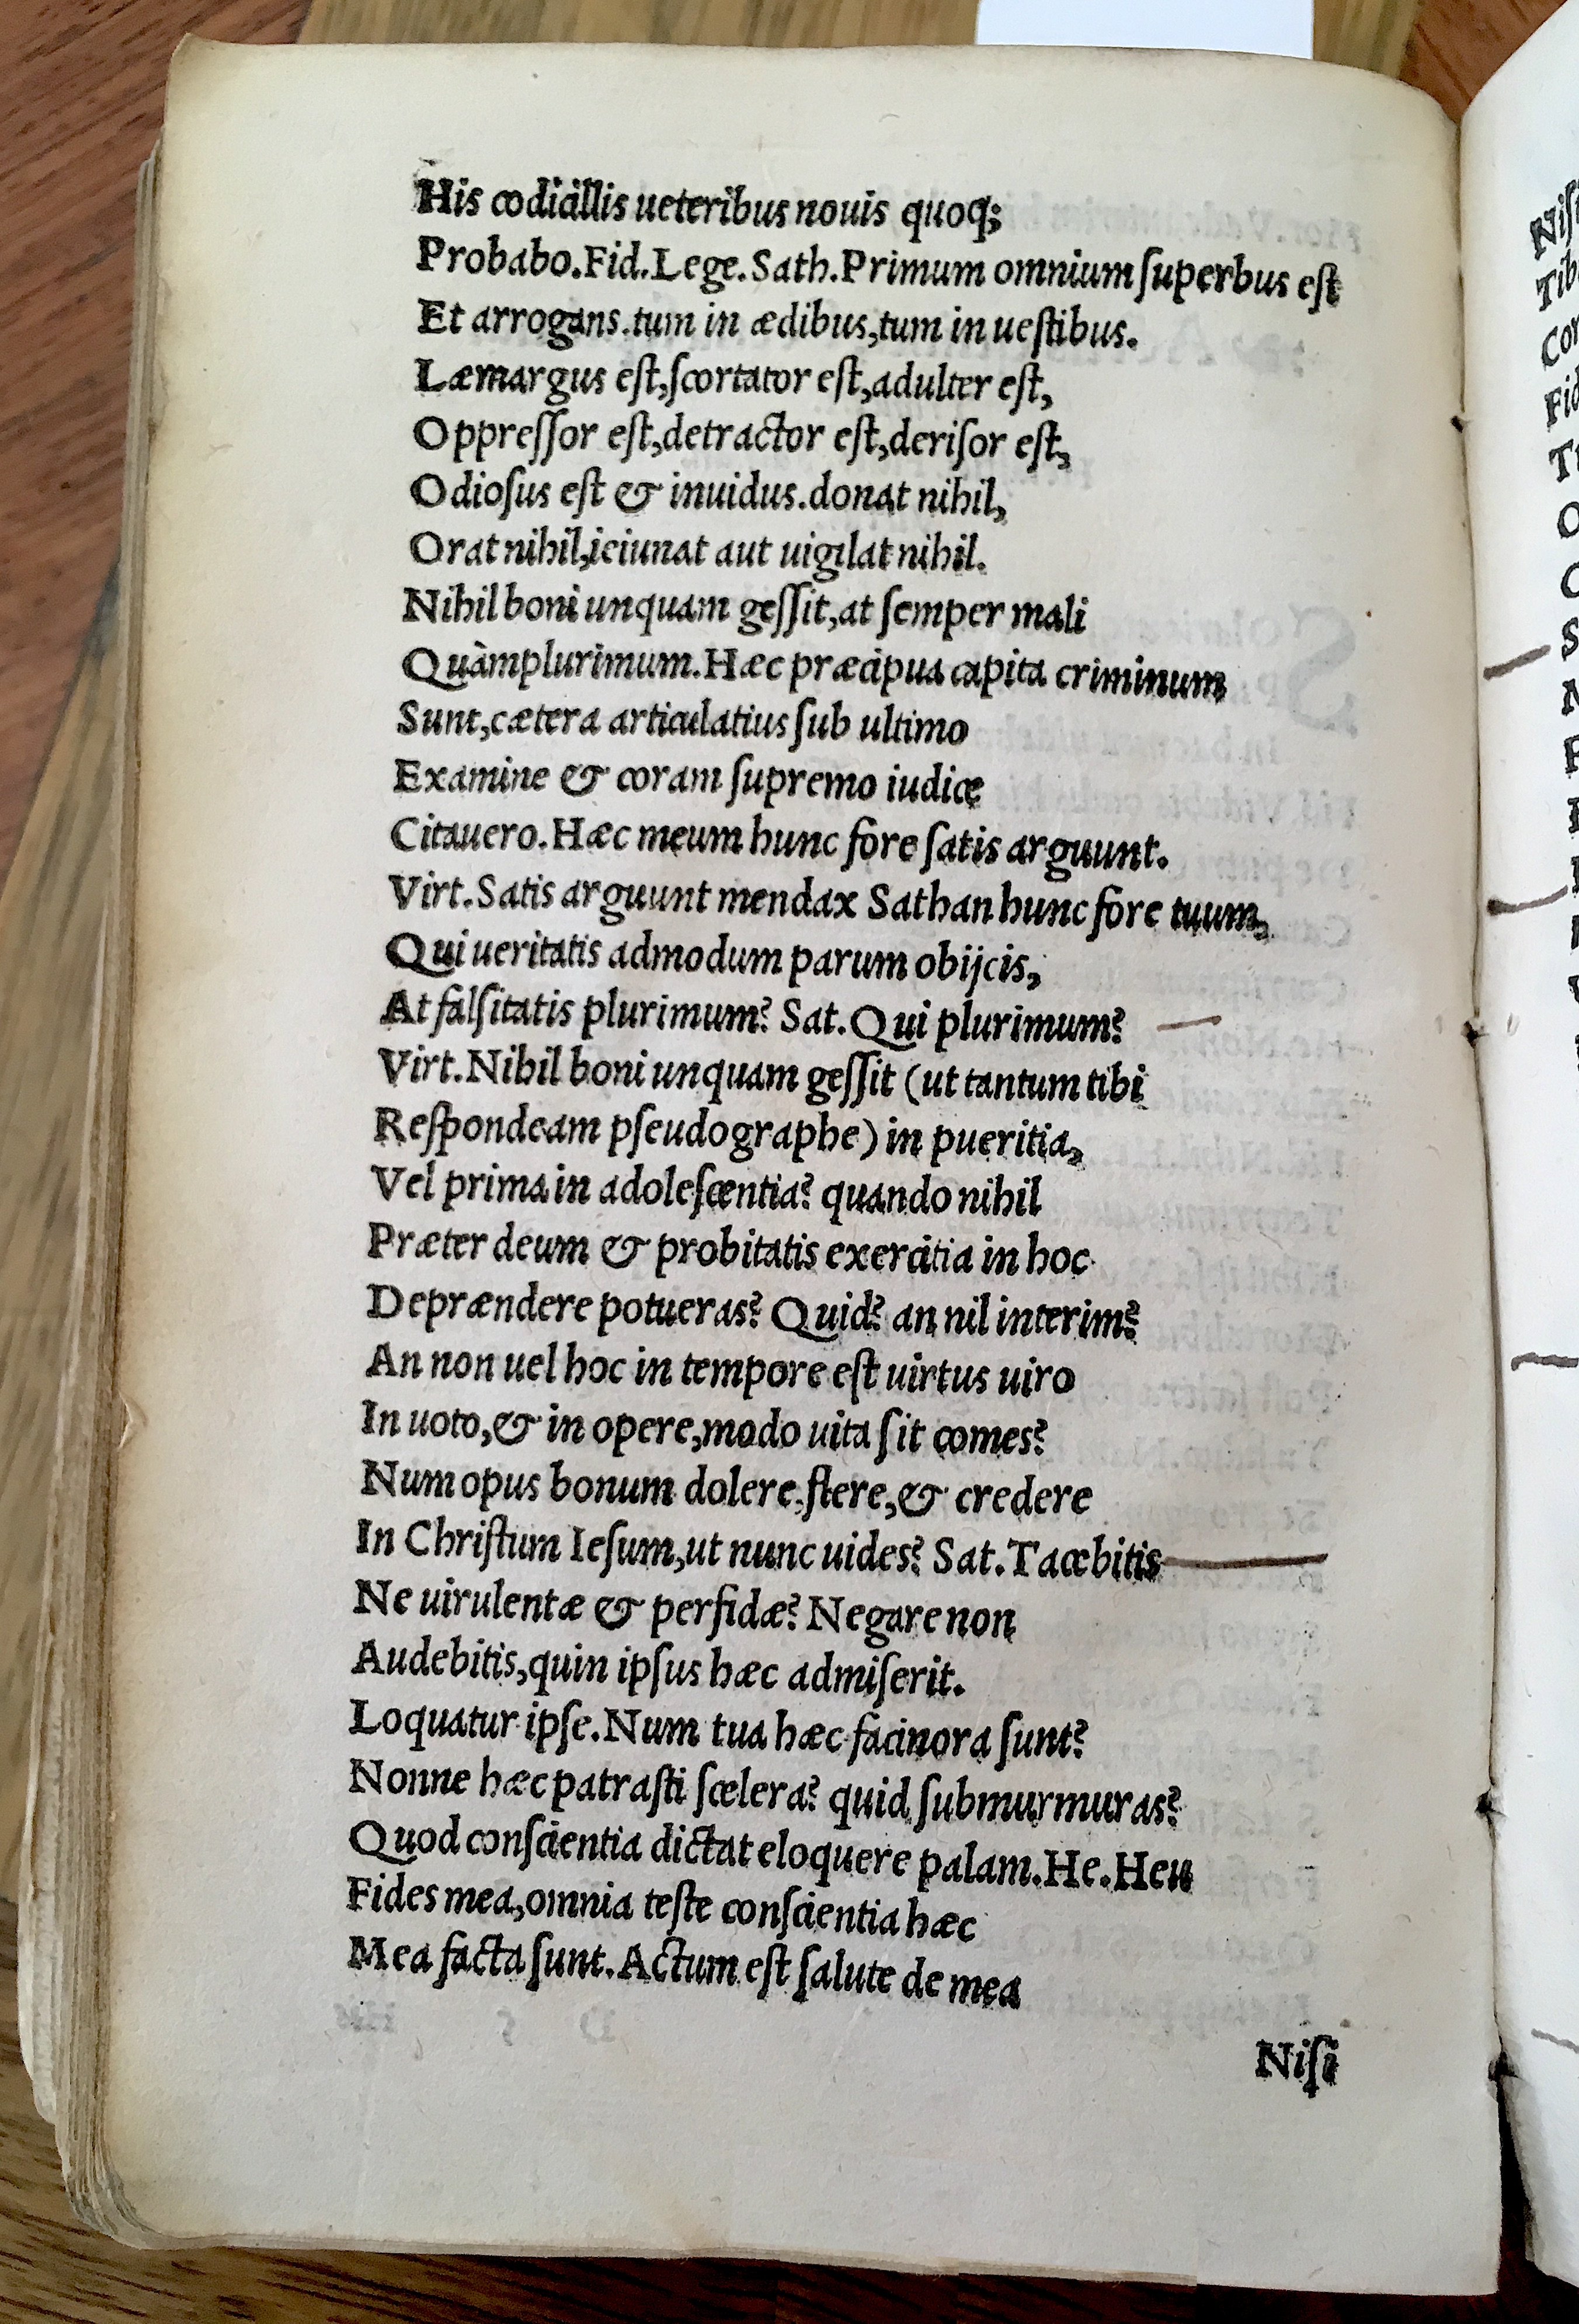 His codicillis ueteribus nouis quoq;
Probabo.Fid.Lege.Sath.Primum omnium ſuperbus eſt
Et arrogans.tum in ædibus,tum in ueſtibus.
Læmargus eſt,ſcortator eſt,adulter eſt,
Oppreſſor eſt,detractor eſt,deriſor eſt,
Odioſus eſt & inuidus.donat nihil,
Orat nihil,ieiunat aut uigilat nihil.
Nihil boni unquam geſſit,at ſemper mali
Quàmplurimum.Hæc præcipua capita criminum
Sunt,cætera articulatius ſub ultimo
Examine & coram ſupremo iudice
Citauero.Hæc meum hunc fore ſatis arguunt.
Virt.Satis arguunt mendax Sathan hunc fore tuum,
Qui ueritatis admodum parum obijcis,
At falſitatis plurimum? Sat.Qui plurimum?
Virt.Nihil boni unquam geſſit (ut tantum tibi
Reſpondeam pſeudographe) in pueritia,
Vel prima in adoleſcentia? quando nihil
Præter deum & probitatis exercitia in hoc
Deprændere potueras? Quid? an nil interim?
An non uel hoc in tempore eſt uirtus uiro
In uoto,& in opere,modo uita ſit comes?
Num opus bonum dolere.flere,& credere
In Chriſtum Ieſum,ut nunc uides? Sat.Tacebitis
Ne uirulentæ & perfidæ? Negare non
Audebitis,quin ipſus hæc admiſerit.
Loquatur ipſe.Num tua hæc facinora ſunt?
Nonne hæc patraſti ſcelera? quid ſubmurmuras?
Quod conſcientia dictat eloquere palam.He.Heu
Fides mea,omnia teſte conſcientia hæc
Mea facta ſunt.Actum eſt ſalute de mea
Niſi